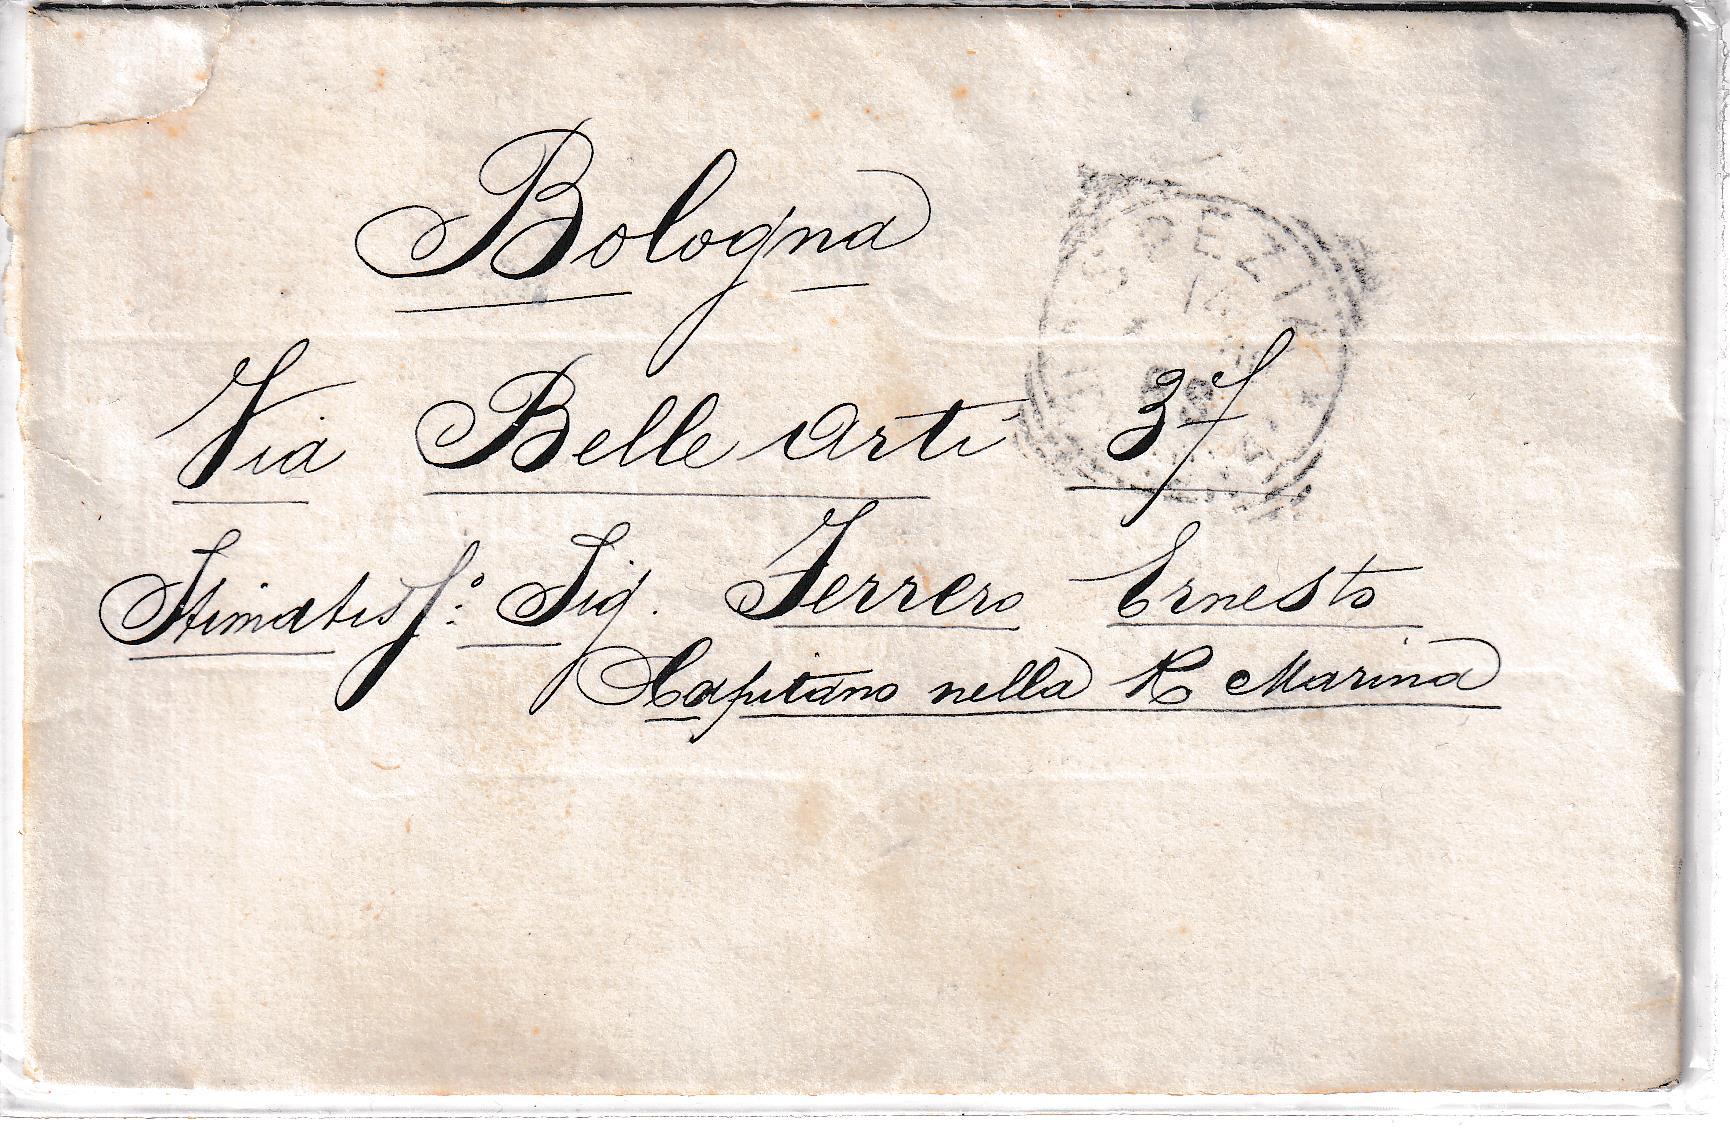 Bologna
SPEZIA
14
Via Belle Arti 37
Stimatiss.º Sig. Ferrero Ernesto
Capitano nella R Marina